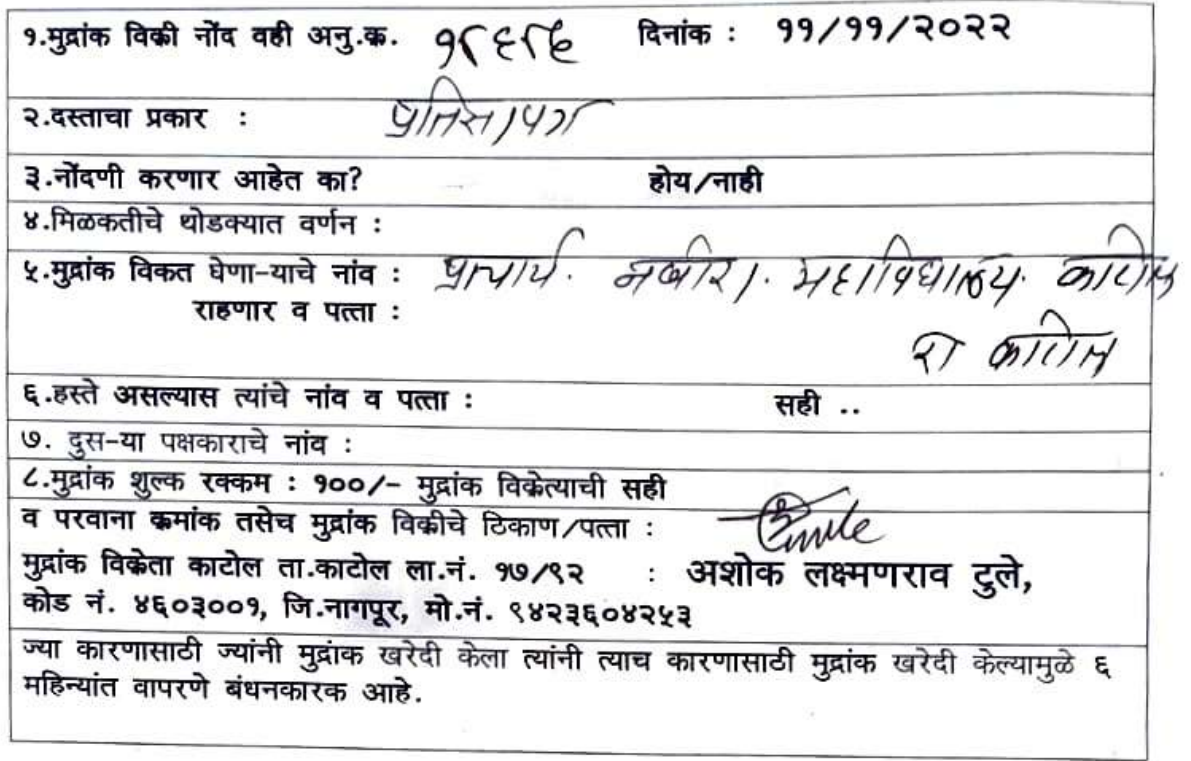 १.मुद्रांक विक्री नोंद वही अनु.क्र. १८६८६ दिनांक : ११/११/२०२२
२.दस्ताचा प्रकार : प्रतिज्ञापत्र
३.नोंदणी करणार आहेत का? होय/नाही
४.मिळकतीचे थोडक्यात वर्णन :
५.मुद्रांक विकत घेणा-याचे नांव : प्राचार्य. नबीरा. महाविद्यालय. काटोल
राहणार व पत्ता :
रा काटोल
६.हस्ते असल्यास त्यांचे नांव व पत्ता : सही ..
७. दुस-या पक्षकाराचे नांव :
८.मुद्रांक शुल्क रक्कम : १००/- मुद्रांक विक्रेत्याची सही
व परवाना क्रमांक तसेच मुद्रांक विक्रीचे ठिकाण/पत्ता :
मुद्रांक विक्रेता काटोल ता.काटोल ला.नं. १७/९२ : अशोक लक्ष्मणराव टुले,
कोड नं. ४६०३००१, जि.नागपूर, मो.नं. ९४२३६०४२५३
ज्या कारणासाठी ज्यांनी मुद्रांक खरेदी केला त्यांनी त्याच कारणासाठी मुद्रांक खरेदी केल्यामुळे ६
महिन्यांत वापरणे बंधनकारक आहे.